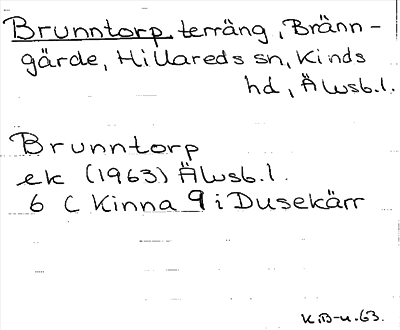 Brunntorp, terräng, Bränn-
gärde, Hillareds sn, Kinds
hd, Älvsb.l.
Brunntorp
ek (1963) Älvsb.l.
6 C Kinna 9 i Dusekärr
K.B-u.63.